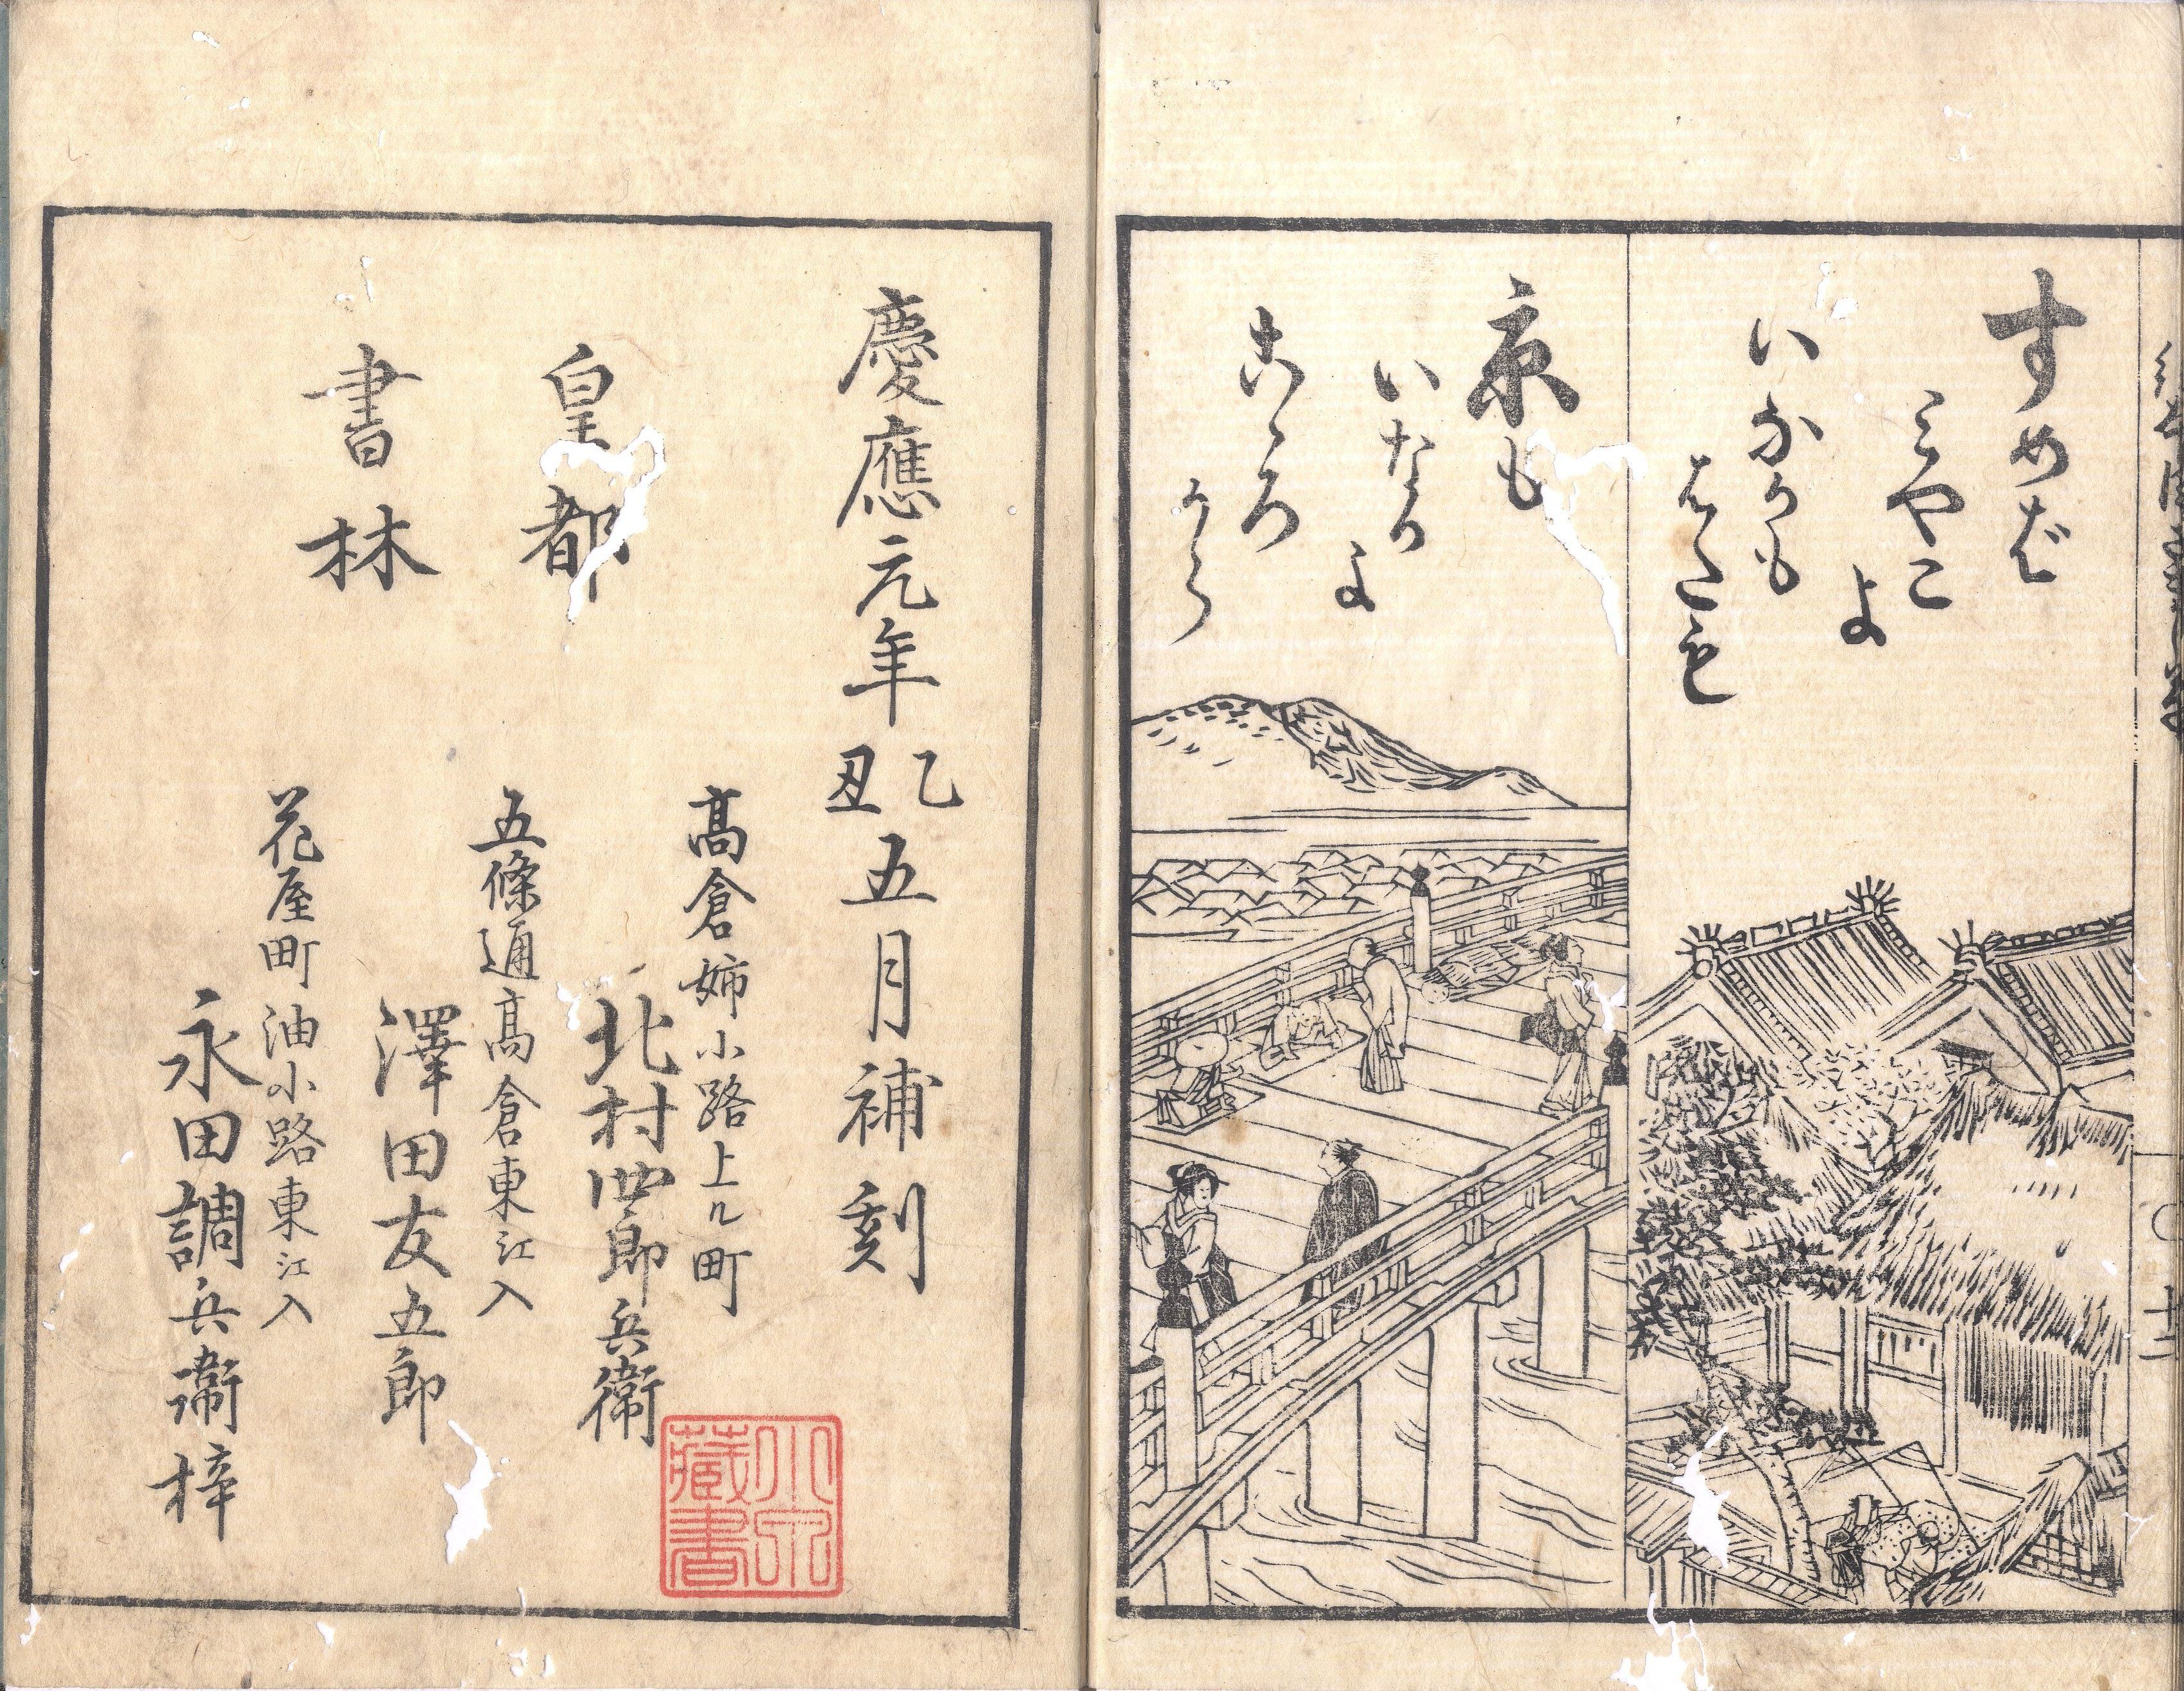 すめば
みやこよ
いなかも
京も
いなかよ
こゝろ
から
十二
慶應元年乙丑五月補刻
皇都
書林
高倉姉小路上ル町
北村四郎兵衛
五條通高倉東江入
澤田友五郎
花屋町油小路東江入
永田調兵衛梓
藏書